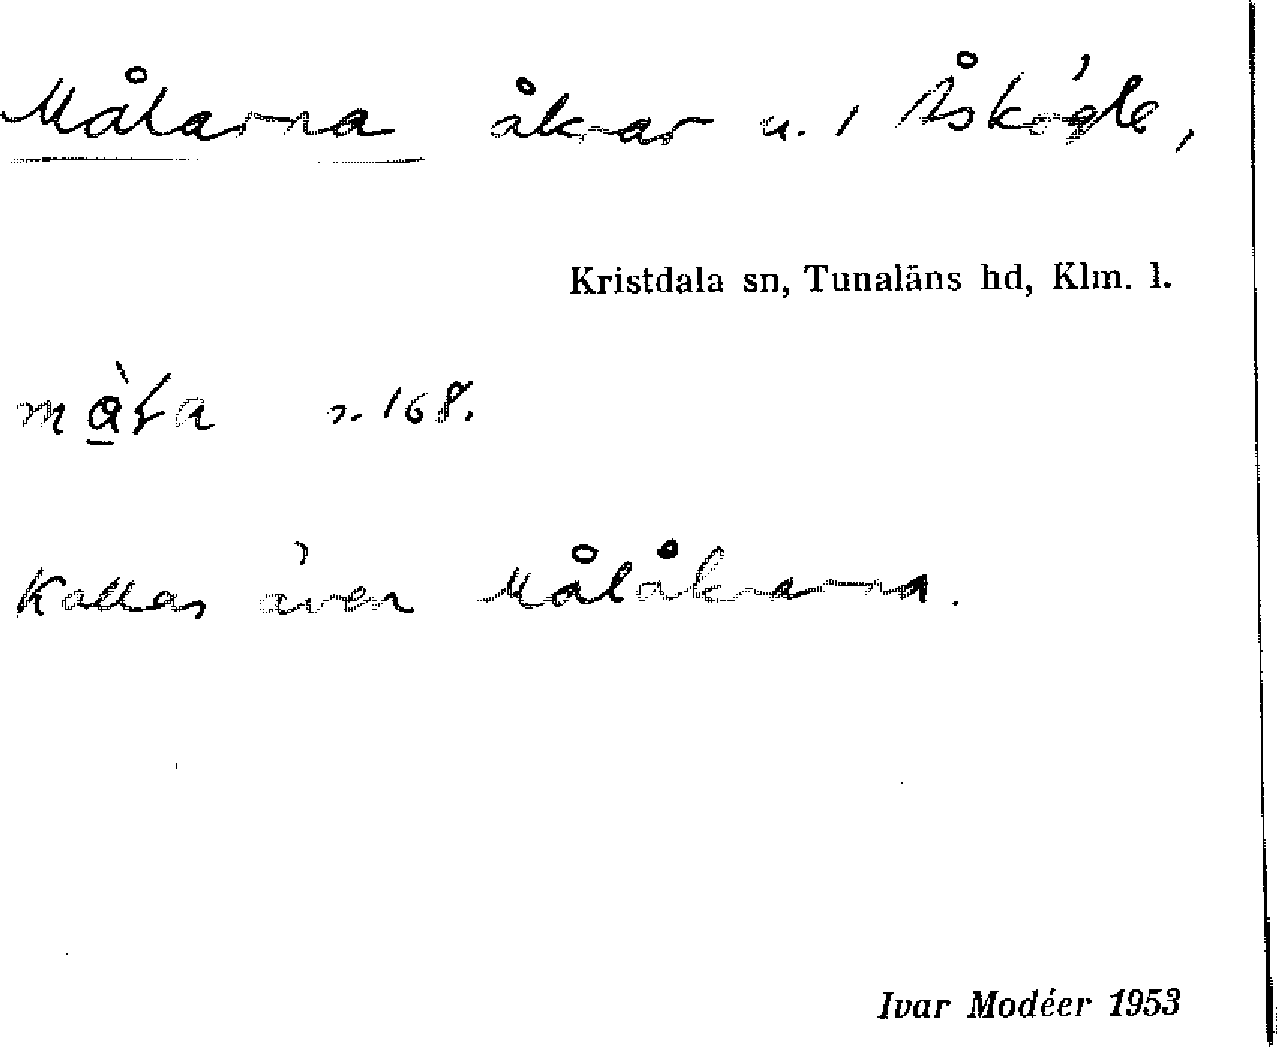 Målarna åkrar u. 1 Åskögle,
Kristdala sn, Tunaläns hd, Klm. l.
s. 168.
Kallas även Målåkrarna.
Ivar Modéer 1953